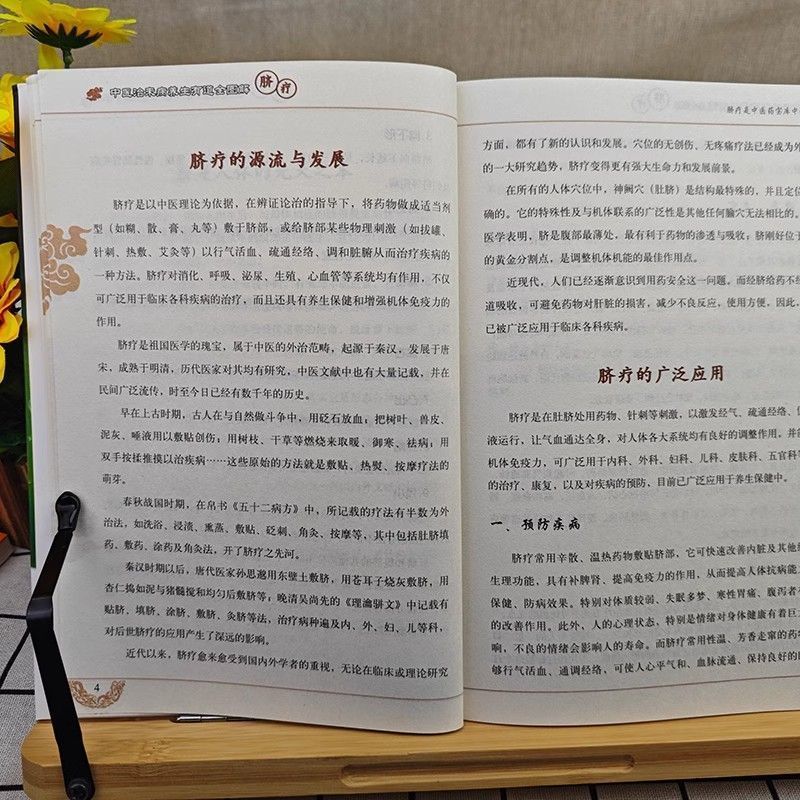 中医治未病养生有道全图解
脐
疗
脐疗的源流与发展
脐疗是以中医理论为依据，在辨证论治的指导下，将药物做成适当剂
型（如糊、散、膏、丸等）敷于脐部，或给脐部某些物理刺激（如拔罐、
针刺、热敷、艾灸等）以行气活血、疏通经络、调和脏腑从而治疗疾病的
一种方法。脐疗对消化、呼吸、泌尿、生殖、心血管等系统均有作用，不仅
可广泛用于临床各科疾病的治疗，而且还具有养生保健和增强机体免疫力的
作用。
脐疗是祖国医学的瑰宝，属于中医的外治范畴，起源于秦汉，发展于唐
宋，成熟于明清，历代医家对其均有研究，中医文献中也有大量记载，并在
民间广泛流传，时至今日已经有数千年的历史。
早在上古时期，古人在与自然做斗争中，用砭石放血；把树叶、兽皮、
泥灰、唾液用以敷贴创伤；用树枝、干草等燃烧来取暖、御寒、祛病；用
双手按揉推摸以治疾病……这些原始的方法就是敷贴、热熨、按摩疗法的
萌芽。
春秋战国时期，在帛书《五十二病方》中，所记载的疗法有半数为外
治法，如洗浴、浸渍、熏蒸、敷贴、砭刺、角灸、按摩等，其中包括肚脐填
药、敷药、涂药及角灸法，开了脐疗之先河。
秦汉时期以后，唐代医家孙思邈用东壁土敷脐，用苍耳子烧灰敷脐，用
杏仁捣如泥与猪髓搅和均匀后敷脐等；晚清吴尚先的《理瀹骈文》中记载有
贴脐、填脐、涂脐、敷脐、灸脐等法，治疗病种遍及内、外、妇、儿等科，
对后世脐疗的应用产生了深远的影响。
近代以来，脐疗愈来愈受到国内外学者的重视，无论在临床或理论研究
4
脐疗是中医药宝库中
方面，都有了新的认识和发展。穴位的无创伤、无疼痛疗法已经成为外
的一大研究趋势，脐疗变得更有强大生命力和发展前景。
在所有的人体穴位中，神阙穴（肚脐）是结构最特殊的，并且定位
确的。它的特殊性及与机体联系的广泛性是其他任何腧穴无法相比的。
医学表明，脐是腹部最薄处，最有利于药物的渗透与吸收；脐刚好位于
的黄金分割点，是调整机体机能的最佳作用点。
近现代，人们已经逐渐意识到用药安全这一问题。而经脐给药不经
道吸收，可避免药物对肝脏的损害，减少不良反应，使用方便，因此，
已被广泛应用于临床各科疾病。
脐疗的广泛应用
脐疗是在肚脐处用药物、针刺等刺激，以激发经气、疏通经络、
液运行，让气血通达全身，对人体各大系统均有良好的调整作用。并
机体免疫力，可广泛用于内科、外科、妇科、儿科、皮肤科、五官科等
的治疗、康复，以及对疾病的预防，目前已广泛应用于养生保健中。
一、预防疾病
脐疗常用辛散、温热药物敷贴脐部，它可快速改善内脏及其他组
生理功能，具有补脾肾、提高免疫力的作用，从而提高人体抗病能
保健、防病效果。特别对体质较弱、失眠多梦、寒性胃痛、腹泻者有
的改善作用。此外，人的心理状态，特别是情绪对身体健康有着巨大
响，不良的情绪会影响人的寿命。而脐疗常用性温、芳香走窜的药
够行气活血、通调经络，可使人心平气和、血脉流通、保持良好的